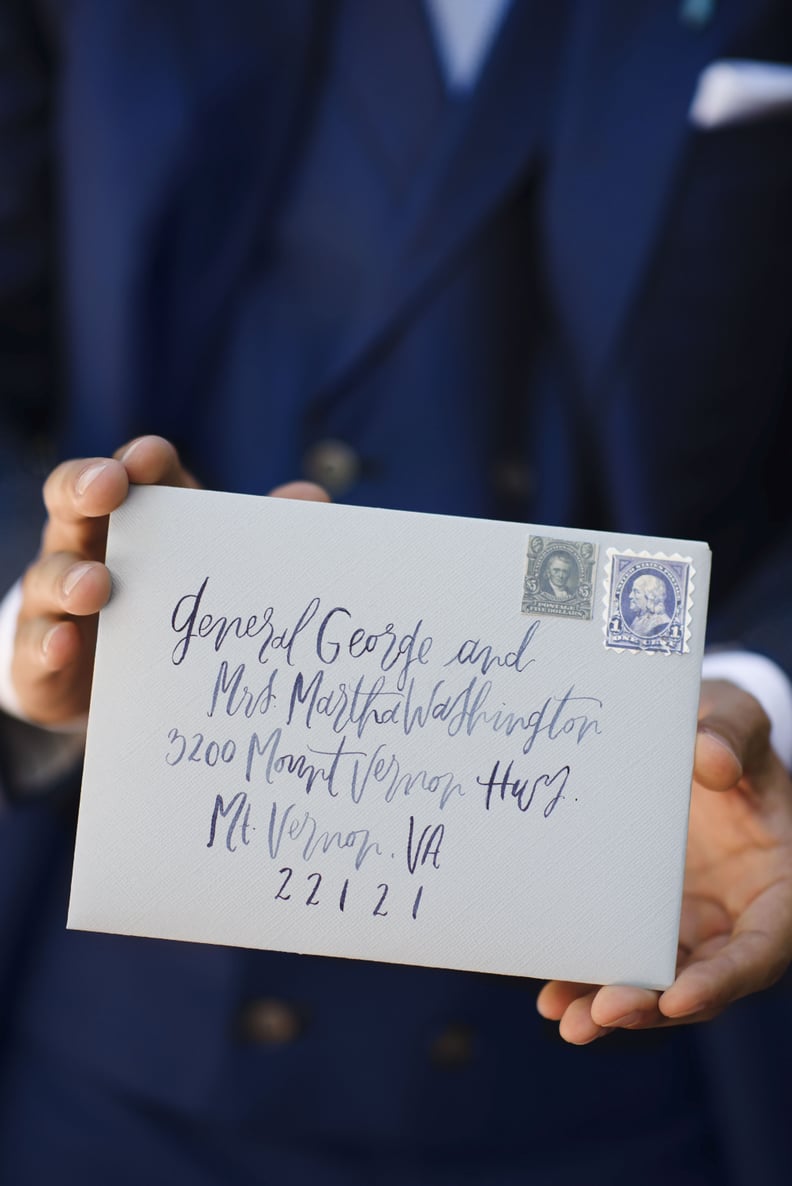 UNITED STATES POSTAGE
5 5
POSTAGE
FIVE DOLLARS
1 1
ONE CENT
General George and
Mrs. Martha Washington
3200 Mount Vernon Hwy.
Mt. Vernon, VA
22121